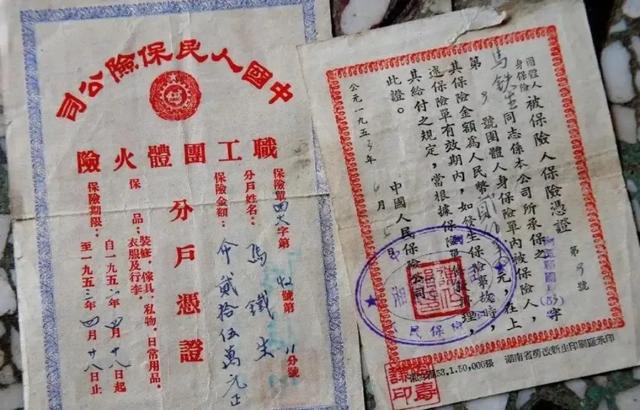 中國人民保險公司
職工團體火險
分戶憑證
保險單 字第 號第 11 分號
分戶姓名:馬鐵生
保險金額: 貳拾伍萬元正
保品:裝修,傢具,私物,日常用品,衣服及行李
保險期限:自一九五 年四月十八日起
至一九五三年四月十八日止
團體人身保險被保險人保險憑證
第 號
馬鉄生同志係本公司所承保之 字
第 號團體人身保險單內被保險人,
其保險金額為人民幣 元在上
述保險單有效期內,如發生保險事故時,
其給付之規定,當根據保險單 理,
此證。
中國人民保險公司
公元一九五三年 月 日
53.1.50,000張
湖南省 新生印刷廠承印